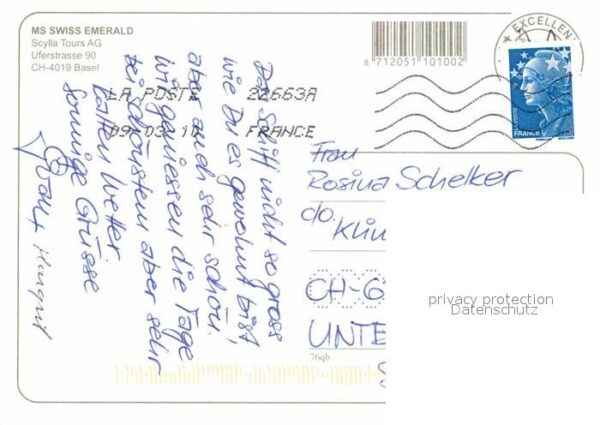 MS SWISS EMERALD
Scylla Tours AG
Uferstrasse 90
CH-4019 Basel
8 712051 101002
EXCELLEN
LA POSTE 22663A
09-03-1
FRANCE
FRANCE
Das Schiff nicht so gross
wie Du es gewohnt bist,
aber auch sehr schön.
Wir geniessen die Tage
bei schönstem aber sehr
kalten Wetter
sonnige Grüsse
Margrit
Frau
Rosina Schelker
c/o. Klin
CH-6
UNTE
76qb
privacy protection
Datenschutz